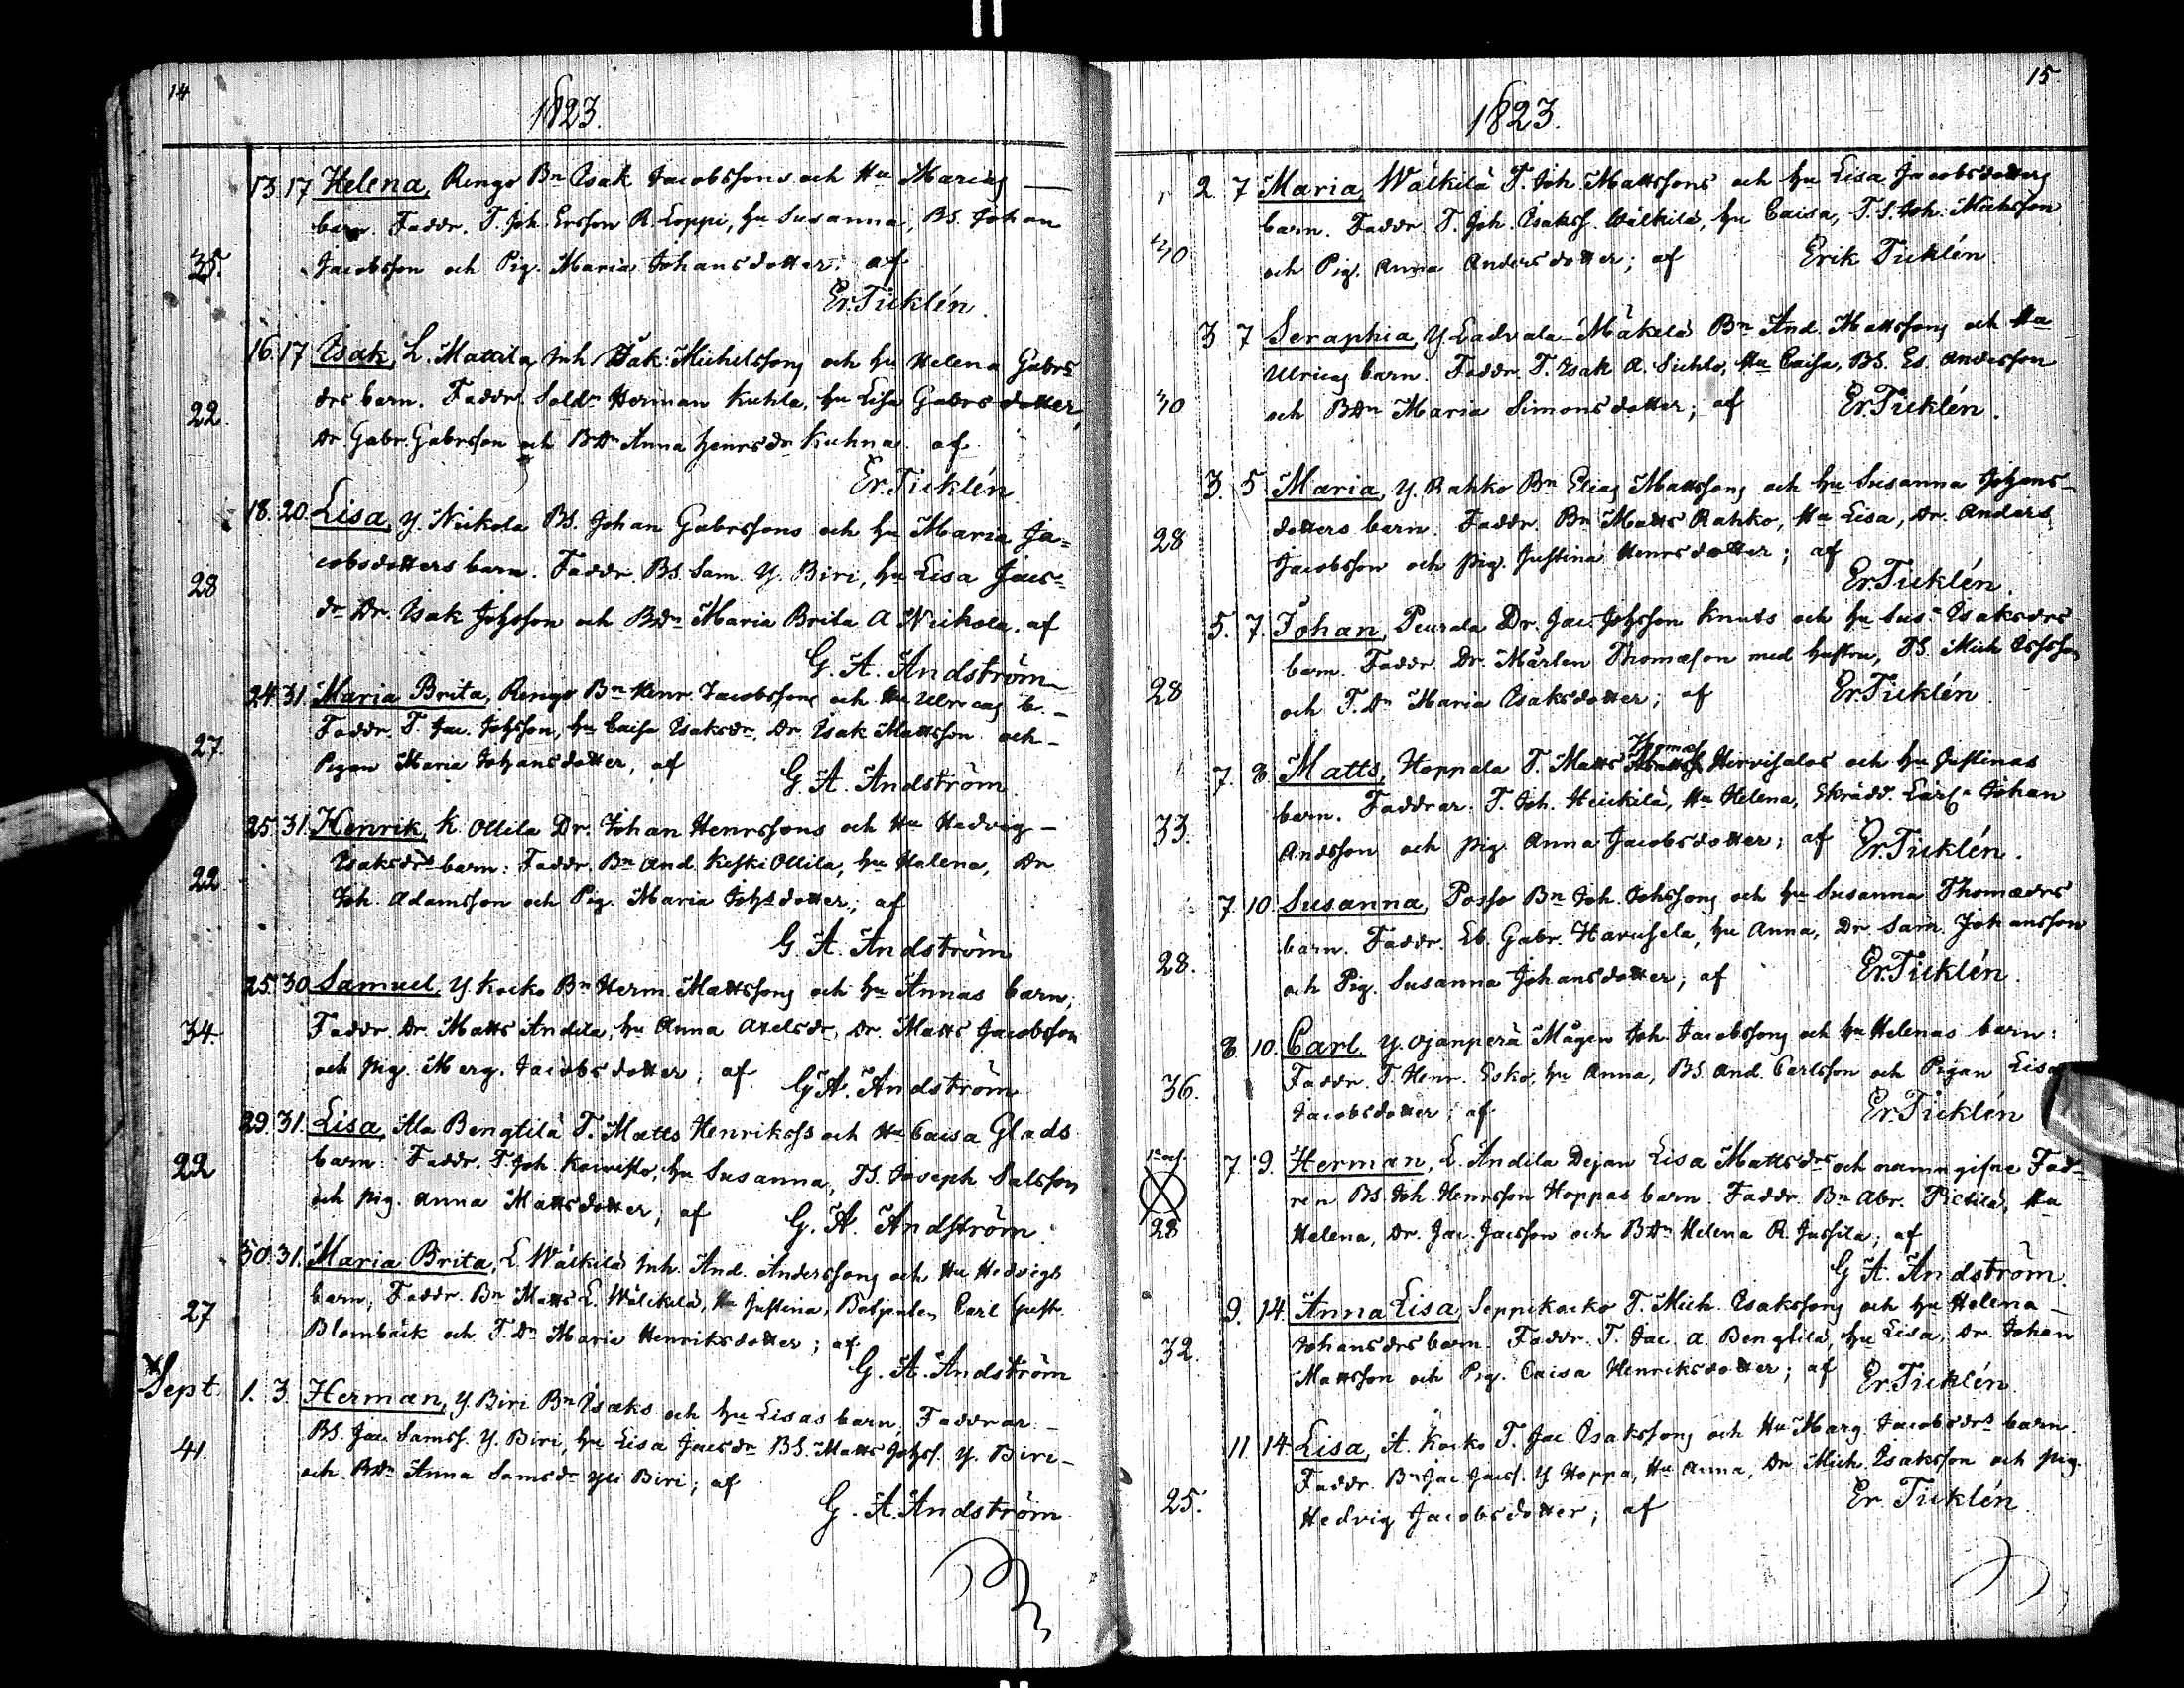 14
1823.
13. 17. Helena, Rengo Bn Isak Jacobssons och Hu Marias
barn. Faddr. T. Joh. Ersson R. Loppi, hu Susanna, BS. Johan
35. Jacobsson och Pig. Maria Johansdotter; af
Er. Ticklén.
16. 17. Isak, L. Mattila Inh. Isak Michelssons och hu Helena Gabrs
drs barn. Faddr. Soldn Herman Kuhla, hu Lisa Gabrsdotter,
22. Dr. Gabr. Gabrsson och BDn Anna Henrsdr Kuhna. af
Er. Ticklén
18. 20. Lisa, Y. Nickola BS. Johan Gabrssons och hu Maria Ja=
cobsdotters barn. Faddr. BS. Sam. Y. Biri, hu Lisa Jacs=
28 dr Dr. Isak Johsson och BDn Maria Brita A Nickola. af
G. A. Andström
24. 31. Maria Brita, Rengo Bn Henr. Jacobssons och Hu Ulricas b.
Faddr. T. Jac. Johsson, hu Caisa Isaksdr, Dr. Isak Mattsson och
27. Pigan Maria Johansdotter, af
G. A. Andström
25. 31. Henrik, K. Ollila Dr. Johan Henrssons och Hu Hedvig
Isaksdrs barn: Faddr. Bn And. Keski Ollila, hu Halena, Dr
22. Joh. Adamsson och Pig. Maria Johsdotter; af
G. A. Andström
25. 30. Samuel, Y. Kocko Bn Herm. Mattssons och hu Annas barn;
34. Faddr. Dr. Matts Andila, hu Anna Axelsdr, Dr. Matts Jacobsson
och pig. Marg. Jacobsdotter; af
G. A. Andström
29. 31. Lisa, Ala Bengtilä T. Matts Henrikss och Hu Caisa Glads
22 barn: Faddr. T. Joh. Koivisto, hu Susanna, TS. Joseph Salsson
och pig. Anna Mattsdotter; af
G. A. Andström
30. 31. Maria Brita, L. Wälkilä Inh. And. Anderssons och Hu Hedvigs
27 barn; Faddr. Bn Matts L. Wälckilä, Hu Justina, Båtsman Carl Gust.
Blombäck och T. Dn Maria Henriksdotter; af
G. A. Andström
Sept. 1. 3. Herman, Y. Biri Bn Isaks och hu Lisas barn; Faddrar
41. BS. Jac. Samss. Y. Biri, hu Lisa Jacsdr BS. Matts Johss. Y. Biri
och BDn Anna Samsdr Yli Biri; af
G. A. Andström
15
1823.
2 7 Maria, Wälkilä T. Joh. Mattssons och hu Lisa Jacobsdotters
barn. Faddr. T. Joh. Isakss. Wälkilä, hu Caisa, T.S. Joh. Michsson
40 och Pig. Anna Andersdotter; af Erik Ticklén
3 7 Seraphia, Y Ladvala-Mäkelä Bn And. Mattssons och Hu
Ulricas barn. Faddr. T. Isak A. Suhlo, Hu Caisa, BS. Es. Andersson
40 och BDn Maria Simonsdotter; af Er. Ticklén.
3. 5 Maria, Y. Rahko Bn Elias Mattssons och hu Susanna Johans-
28 dotters barn. Faddr. Bn Matts Rahko, Hu Lisa, Dr. Anders
Jacobsson och pig. Justina Henrsdotter; af
Er. Ticklén.
5. 7. Johan, Peurala Dr. Jac. Johsson Knuts och hu Sus. Isaksdrs
barn. Faddr. Dr. Mårten Thomasson med hustru, TS. Mich Issson
28 och T. Dn Maria Isaksdotter; af Er. Ticklén
7. 8. Matts, Hoppala T. Matts Thomass Hirvisalos och hu Justinas
barn. Faddrar. T. Joh. Heickilä, Hu Helena, Skrädd. Lärl. Johan
33. Andsson och pig. Anna Jacobsdotter; af Er. Ticklén.
7. 10. Susanna, Posso Bn Joh. Johssons och hu Susanna Thomædrs
barn. Faddr. Eb. Gabr. Havusela, hu Anna, Dr. Sam. Johansson
28. och Pig. Susanna Johansdotter; af Er. Ticklén.
8 10. Carl, Y. Ojanperä Mågen Joh. Jacobssons och hu Helenas barn:
36. Faddr. T. Henr. Esko, hu Anna, BS. And. Carlsson och Pigan Lisa
Jacobsdotter; af Er. Ticklén
7. 9. Herman, L. Andila Dejan Lisa Mattsdrs och namngifne Fad-
ren BS. Joh. Henrsson Hoppas barn. Faddr. Bn Abr. Pietilä, Hu
28 Helena, Dr. Jac. Jacsson och BDn Helena R. Jussila; af
G. A. Andström.
9. 14. Anna Lisa, Seppikocko T. Mich. Isakssons och hu Helena
32. Johansdrs barn. Faddr. T. Jac. A. Bengtilä, hu Lisa, Dr. Johan
Mattsson och Pig. Caisa Henriksdotter; af Er. Ticklén.
11. 14. Lisa, A. Kocko T. Jac. Isakssons och Hu Marg. Jacobsdrs barn.
Faddr. Bn Jac. Jacss. Y Hoppa, Hu Anna, Dr Mich. Isaksson och pig.
25. Hedvig Jacobsdotter; af Er. Ticklén.